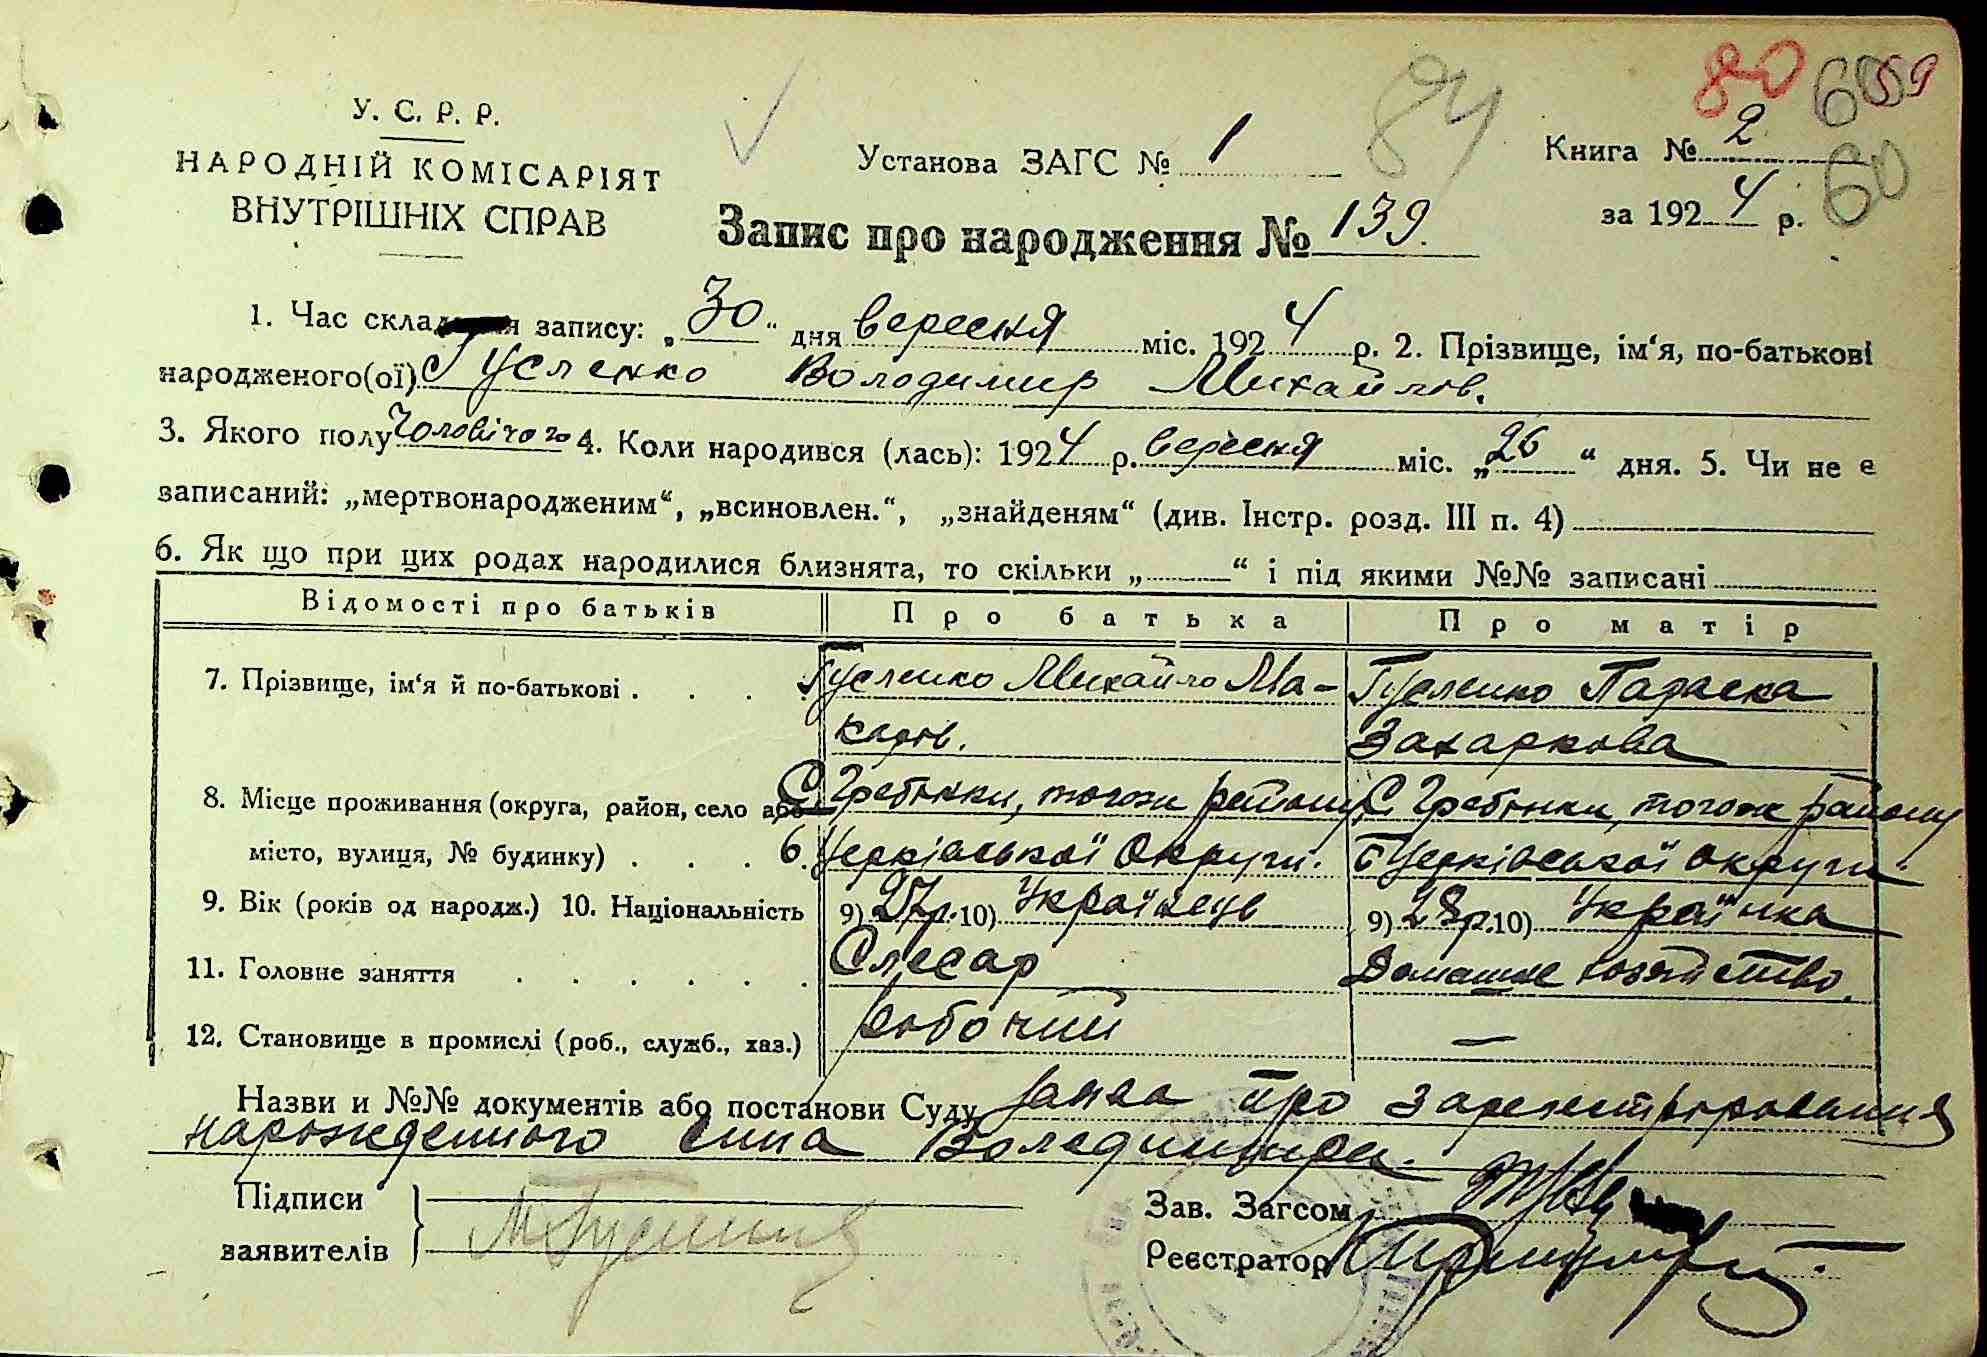 80 60 59
У. С. Р. Р.
НАРОДНІЙ КОМІСАРІЯТ
ВНУТРІШНІХ СПРАВ
Установа ЗАГС № 1
84
Книга № 2
60
за 1924 р.
Запис про народження № 139.
1. Час складення запису: „30“ дня вересня міс. 1924 р. 2. Прізвище, ім‘я, по-батькові
народженого(ої) Гусленко Володимир Михайлов.
3. Якого полу Чоловічого 4. Коли народився (лась): 1924 р. вересня міс. „26“ дня. 5. Чи не є
записаний: „мертвонародженим“, „всиновлен.“, „знайденям“ (див. Інстр. розд. III п. 4)
6. Як що при цих родах народилися близнята, то скільки „ “ і під якими №№ записані
Відомості про батьків Про батька Про матір
7. Прізвище, ім‘я й по-батькові . . . . Гусленко Михайло Ма- Гусленко Параска
каров. Захаркова
8. Місце проживання (округа, район, село або С. Гребінки, тогож району С. Гребінки, тогож району
місто, вулиця, № будинку) . . . Б. Церківської Округи. Б Церківської округи.
9. Вік (років од народж.) 10. Національність 9) 27р. 10) Українець 9) 28р. 10) Українка
11. Головне заняття . . . . . . Слесар Домашнє хозяйство.
12. Становище в промислі (роб., служб., хаз.) робочий —
Назви и №№ документів або постанови Суду заява про зарегистрирование
нарожденного сина Володимира.
Підписи
заявителів
Зав. Загсом
Реєстратор